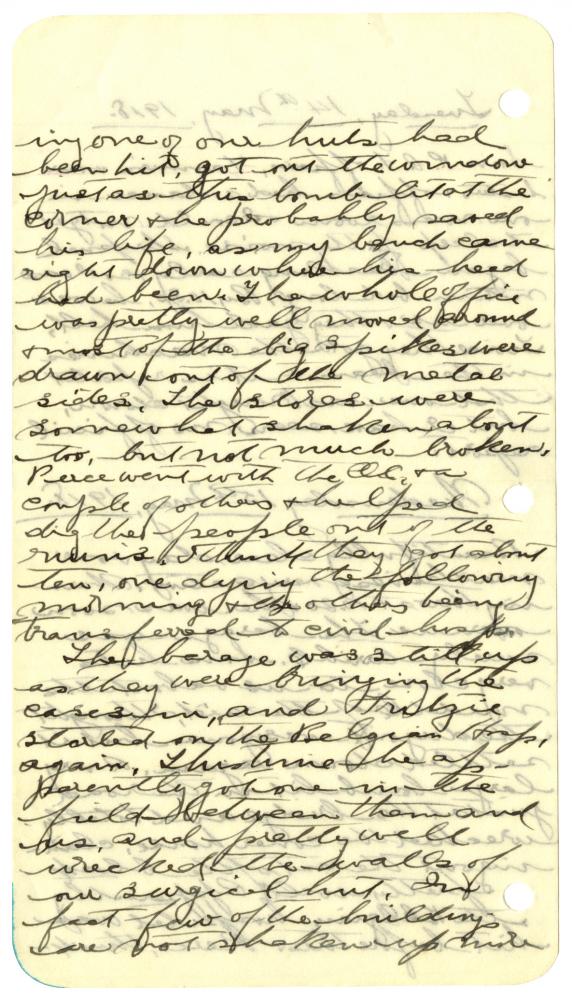 ing one of our huts had
been hit, got out the window
just as this bomb lit at the
corner & he probably saved
his life, as my bench came
right down where his head
had been. The whole office
was pretty well moved around
& most of the big spikes were
drawn out of the metal
sides. The stores were
somewhat shaken about
too, but not much broken.
Perce went with the O.C. & a
couple of others & helped
dig the people out of the
ruins. I think they got about
ten, one dying the following
morning & the others being
transferred to civil hosps.
The barage was still up
as they were bringing the
cases in, and Fritzie
started on the Belgian Hosp.
again. This time he ap-
parently got one in the
field between them and
us, and pretty well
wrecked the walls of
our surgical hut. In
fact few of the buildings
are not shaken up more